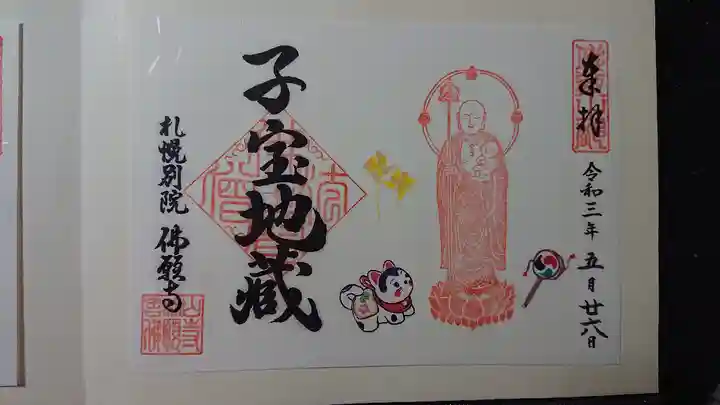 奉拝
令和三年五月廿六日
子宝地蔵
札幌別院 佛願寺